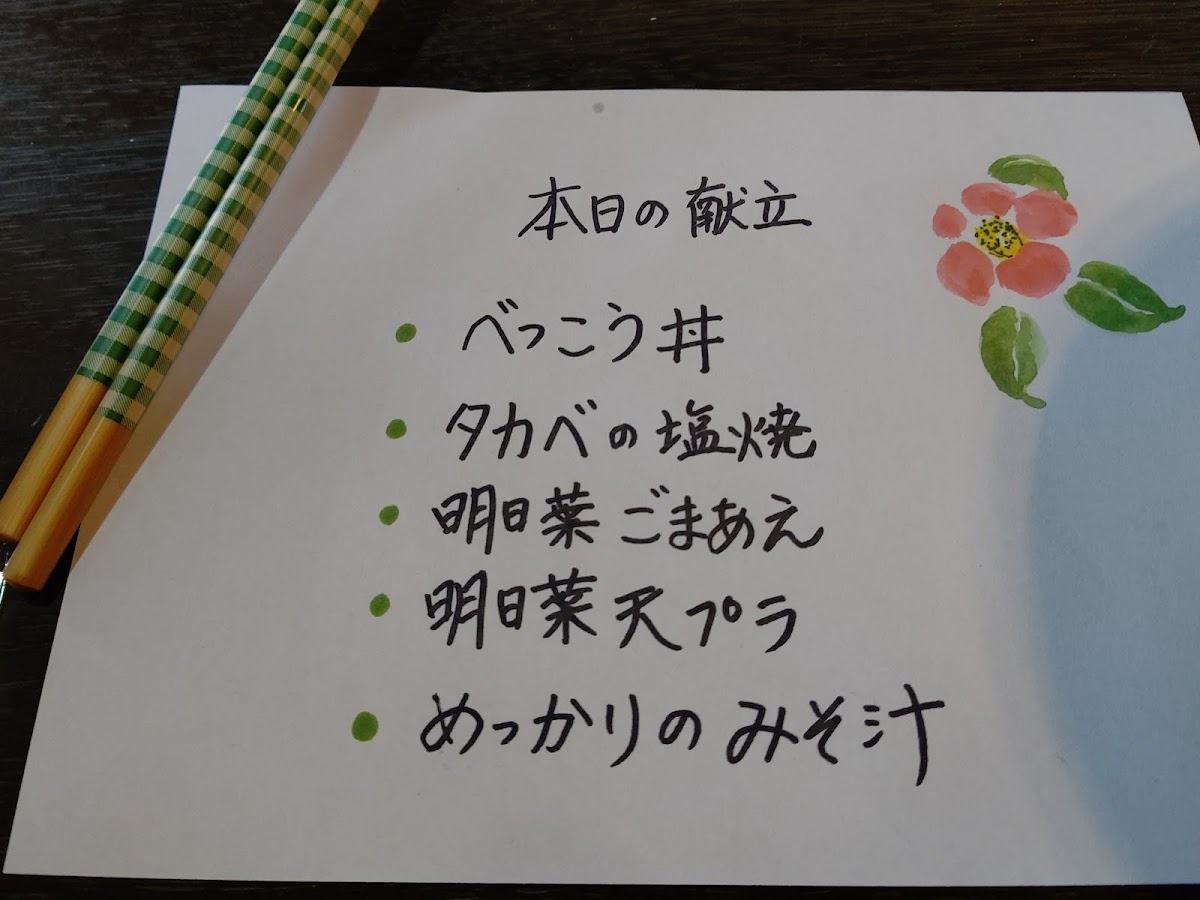 本日の献立
べっこう丼
タカベの塩焼
明日葉ごまあえ
明日葉天プラ
めっかりのみそ汁